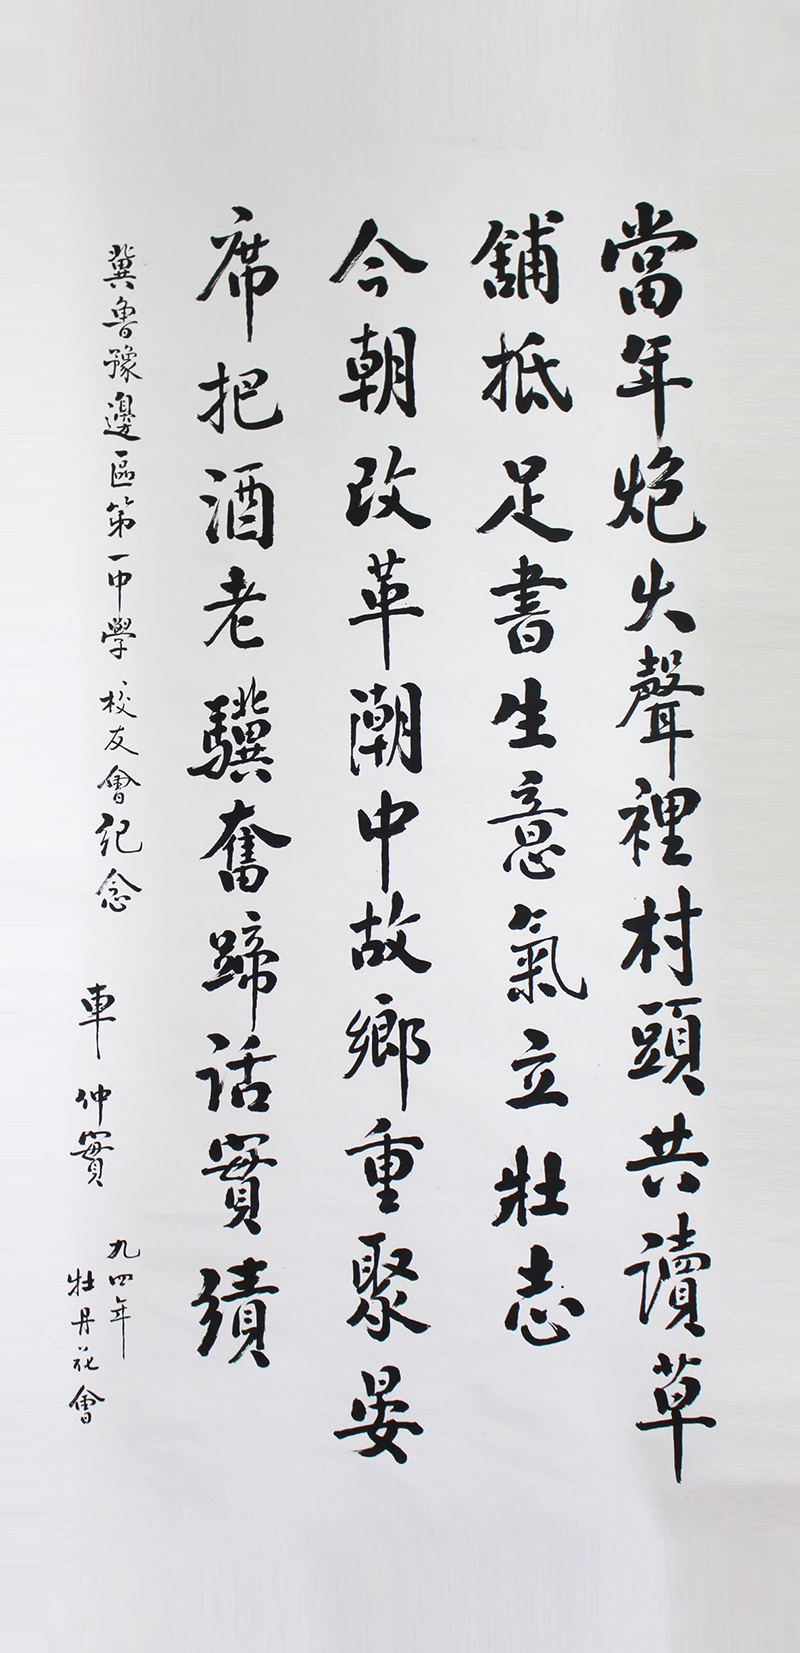 當年炮火聲裡村頭共讀草
舖抵足書生意氣立壯志
今朝改革潮中故鄉重聚晏
席把酒老驥奮蹄话實績
冀魯豫邊區第一中學校友會纪念
車仲實
九四年
牡丹花會